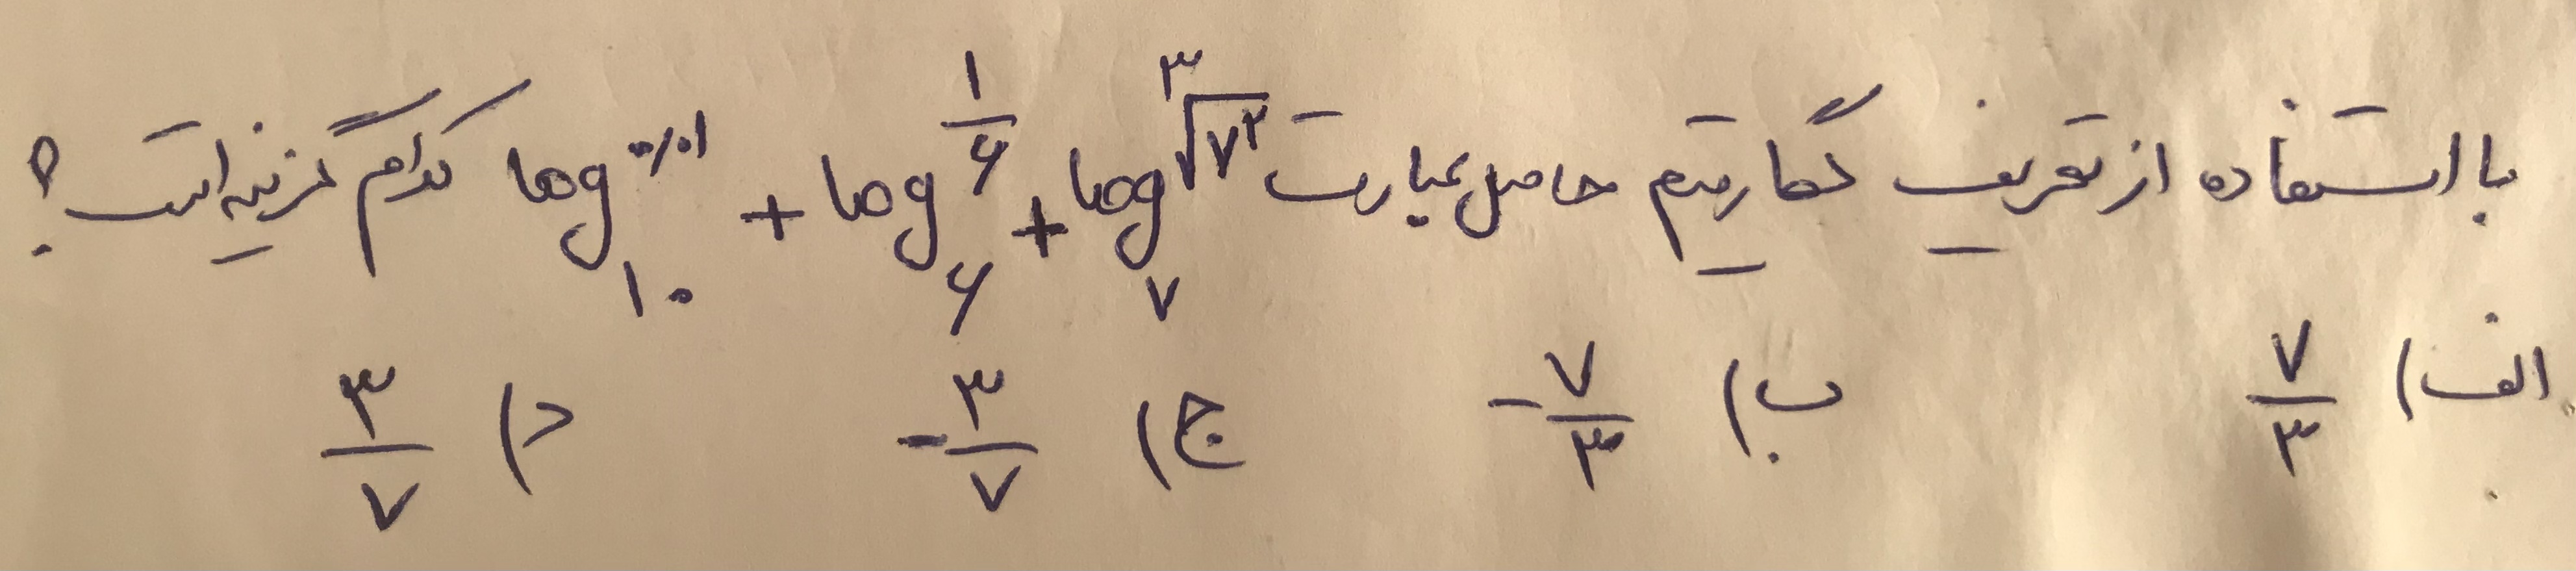 با استفاده از تعریف لگاریتم حاصل عبارت log₁₀ ۰/۰۱ + log₆ ۱/۶ + log₇ ∛۷² کدام گزینه است؟
الف) ۷/۳ ب) -۷/۳ ج) -۳/۷ د) ۳/۷